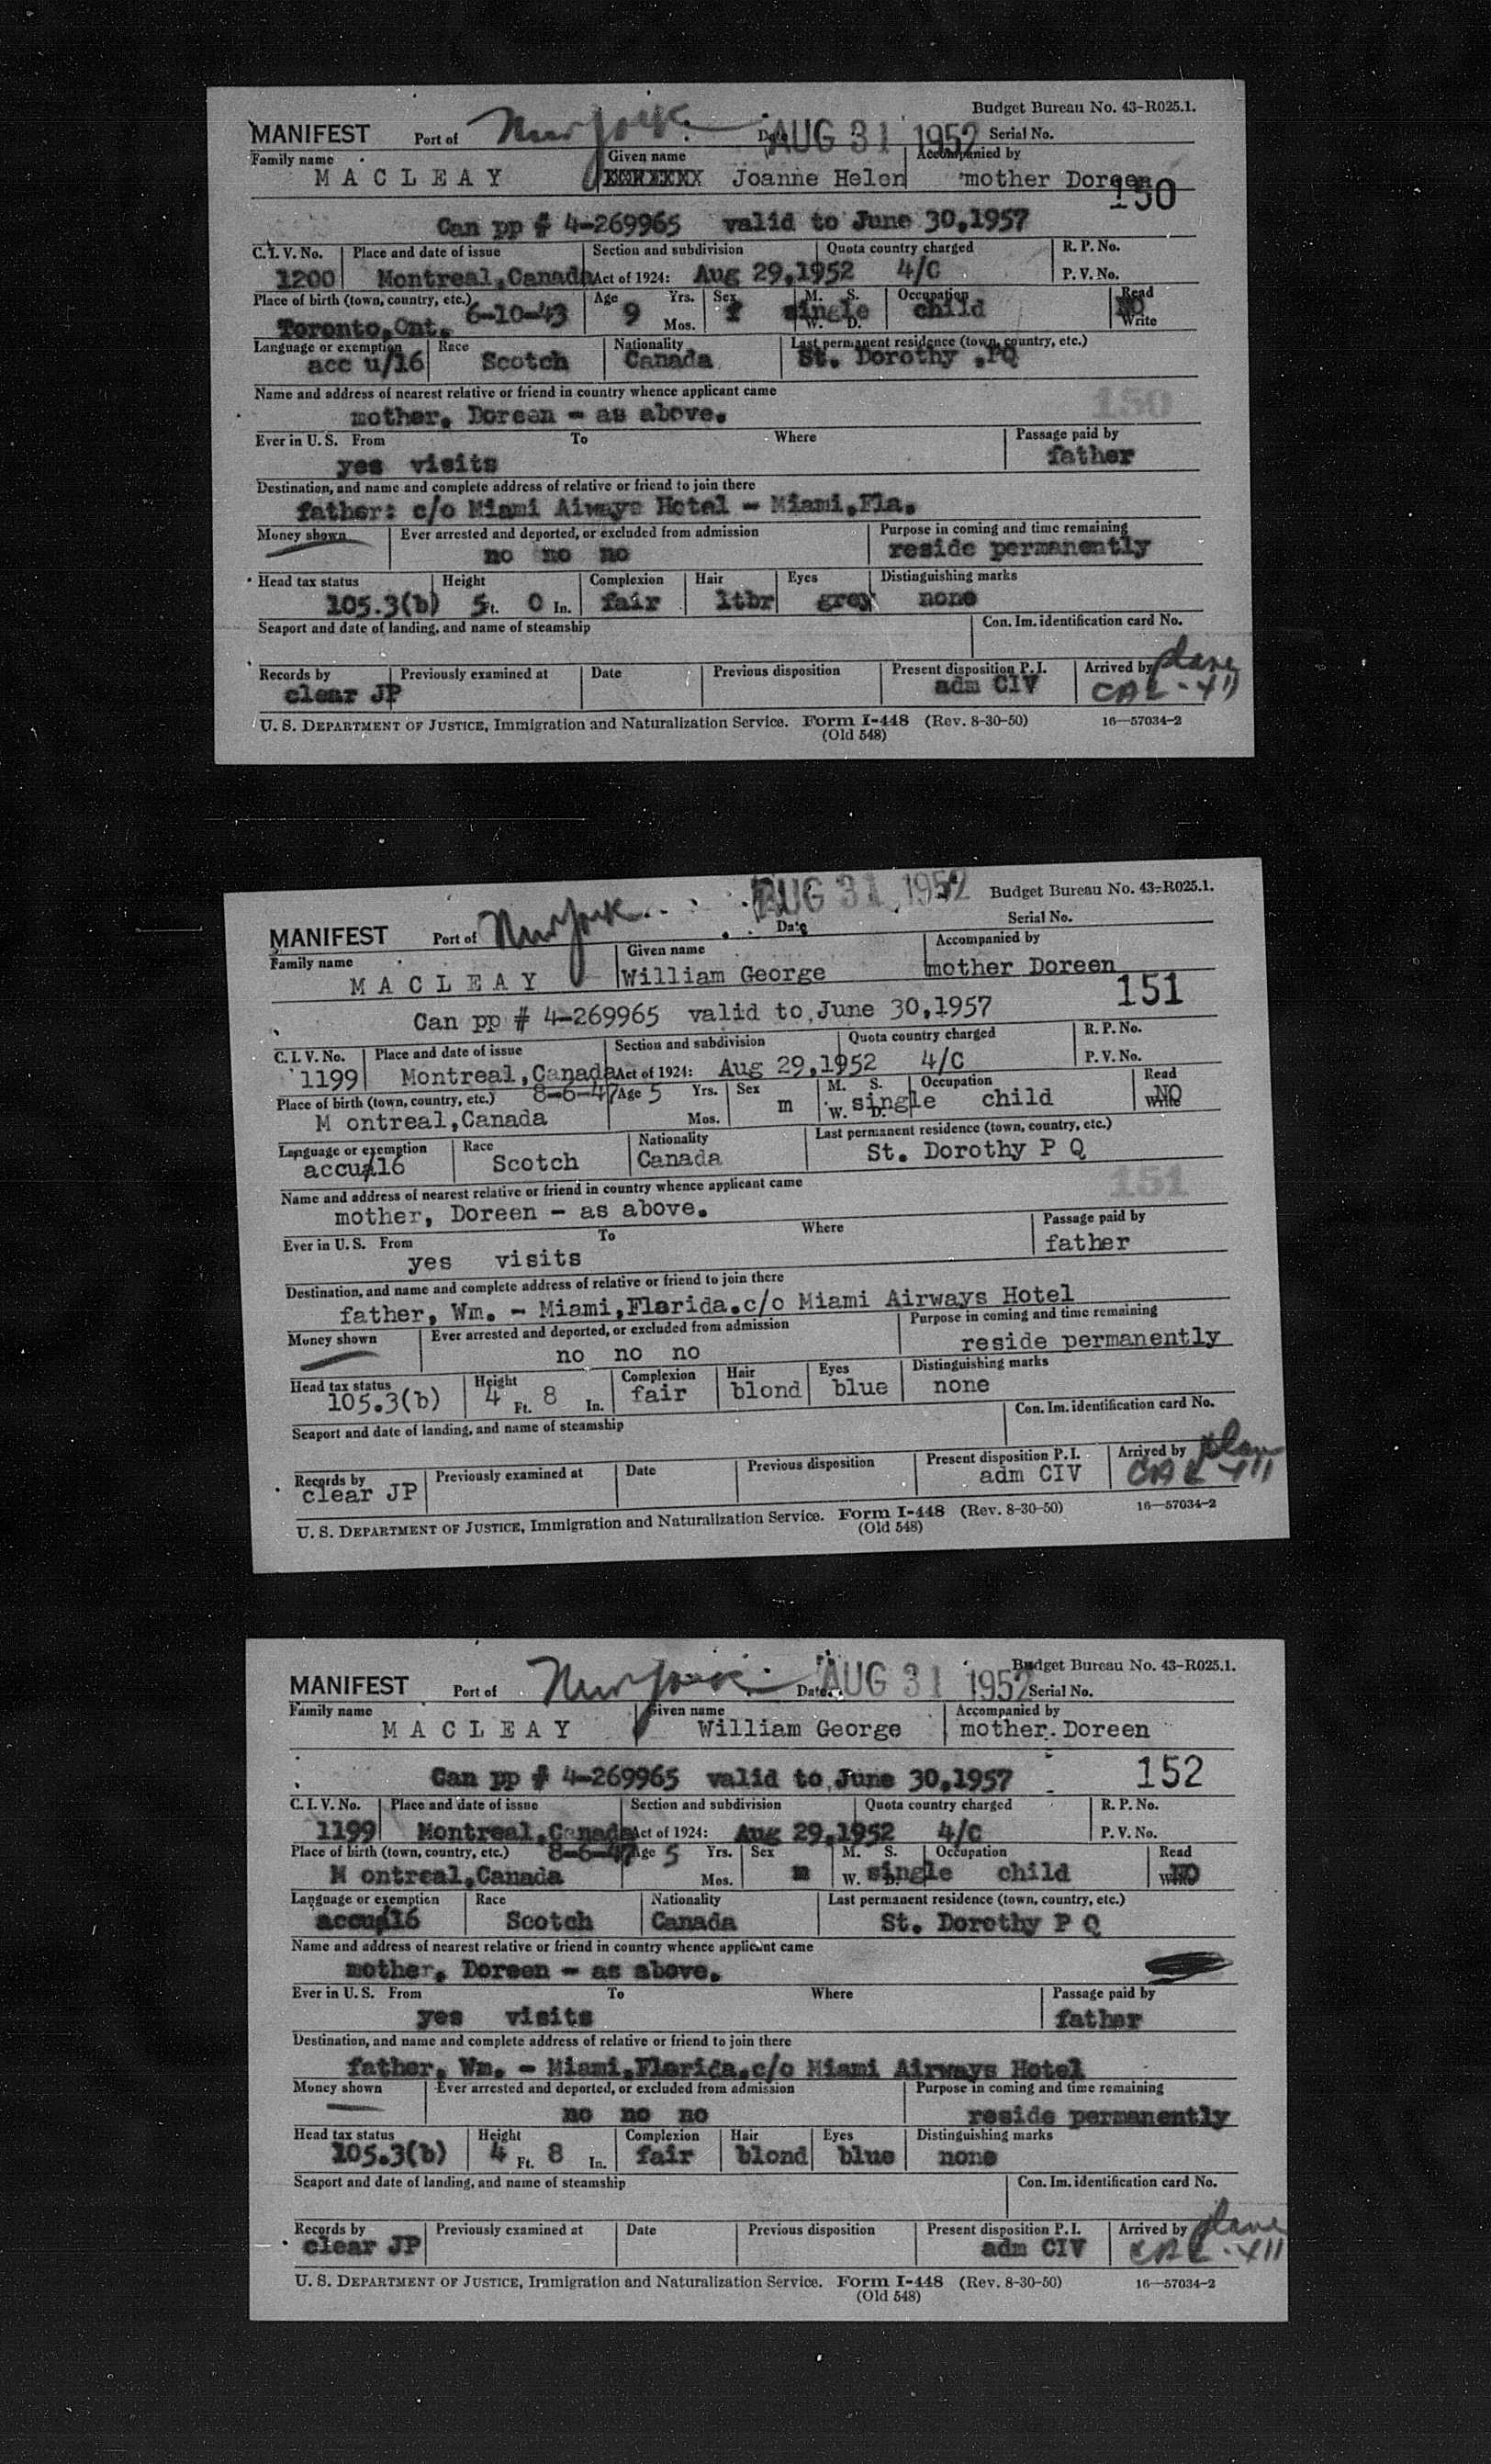 Budget Bureau No. 43-R025.1.
MANIFEST Port of New York Date AUG 31 1952 Serial No.
Family name Given name Accompanied by
MACLEAY Joanne Helen mother Doreen
150
Can pp # 4-269965 valid to June 30,1957
C. I. V. No. Place and date of issue Section and subdivision Quota country charged R. P. No.
1200 Montreal,Canada Act of 1924: Aug 29,1952 4/C P. V. No.
Place of birth (town, country, etc.) 6-10-43 Age 9 Yrs. Sex f M. S. single Occupation child Read NO
Toronto,Ont. Mos. W. D. Write
Language or exemption Race Nationality Last permanent residence (town, country, etc.)
acc u/16 Scotch Canada St. Dorothy ,PQ
Name and address of nearest relative or friend in country whence applicant came
150
mother, Doreen - as above.
Ever in U. S. From To Where Passage paid by
yes visits father
Destination, and name and complete address of relative or friend to join there
father: c/o Miami Aiways Hotel - Miami,Fla.
Money shown Ever arrested and deported, or excluded from admission Purpose in coming and time remaining
no no no reside permanently
Head tax status Height Complexion Hair Eyes Distinguishing marks
105.3(b) 5 Ft. 0 In. fair ltbr grey none
Seaport and date of landing, and name of steamship Con. Im. identification card No.
Records by Previously examined at Date Previous disposition Present disposition P. I. Arrived by plane
clear JP adm CIV
U. S. DEPARTMENT OF JUSTICE, Immigration and Naturalization Service. Form I-448 (Rev. 8-30-50) 16—57034-2
(Old 548)
AUG 31 1952 Budget Bureau No. 43-R025.1.
MANIFEST Port of New York Date Serial No.
Family name Given name Accompanied by
MACLEAY William George mother Doreen
151
Can pp # 4-269965 valid to June 30,1957
C. I. V. No. Place and date of issue Section and subdivision Quota country charged R. P. No.
1199 Montreal,Canada Act of 1924: Aug 29,1952 4/C P. V. No.
Place of birth (town, country, etc.) 8-6-47 Age 5 Yrs. Sex m M. S. single Occupation child Read NO
M ontreal,Canada Mos. W. D. Write
Language or exemption Race Nationality Last permanent residence (town, country, etc.)
accu/16 Scotch Canada St. Dorothy P Q
Name and address of nearest relative or friend in country whence applicant came
151
mother, Doreen - as above.
Ever in U. S. From To Where Passage paid by
yes visits father
Destination, and name and complete address of relative or friend to join there
father, Wm. - Miami,Florida.c/o Miami Airways Hotel
Money shown Ever arrested and deported, or excluded from admission Purpose in coming and time remaining
no no no reside permanently
Head tax status Height Complexion Hair Eyes Distinguishing marks
105.3(b) 4 Ft. 8 In. fair blond blue none
Seaport and date of landing, and name of steamship Con. Im. identification card No.
Records by Previously examined at Date Previous disposition Present disposition P. I. Arrived by plane
clear JP adm CIV
U. S. DEPARTMENT OF JUSTICE, Immigration and Naturalization Service. Form I-448 (Rev. 8-30-50) 16—57034-2
(Old 548)
Budget Bureau No. 43-R025.1.
MANIFEST Port of New York Date AUG 31 1952 Serial No.
Family name Given name Accompanied by
MACLEAY William George mother Doreen
Can pp # 4-269965 valid to June 30,1957 152
C. I. V. No. Place and date of issue Section and subdivision Quota country charged R. P. No.
1199 Montreal,Canada Act of 1924: Aug 29,1952 4/C P. V. No.
Place of birth (town, country, etc.) 8-6-47 Age 5 Yrs. Sex m M. S. single Occupation child Read NO
M ontreal,Canada Mos. W. D. Write
Language or exemption Race Nationality Last permanent residence (town, country, etc.)
accu/16 Scotch Canada St. Dorothy P Q
Name and address of nearest relative or friend in country whence applicant came
mother, Doreen - as above.
Ever in U. S. From To Where Passage paid by
yes visits father
Destination, and name and complete address of relative or friend to join there
father, Wm. - Miami,Florida.c/o Miami Airways Hotel
Money shown Ever arrested and deported, or excluded from admission Purpose in coming and time remaining
no no no reside permanently
Head tax status Height Complexion Hair Eyes Distinguishing marks
105.3(b) 4 Ft. 8 In. fair blond blue none
Seaport and date of landing, and name of steamship Con. Im. identification card No.
Records by Previously examined at Date Previous disposition Present disposition P. I. Arrived by plane
clear JP adm CIV
U. S. DEPARTMENT OF JUSTICE, Immigration and Naturalization Service. Form I-448 (Rev. 8-30-50) 16—57034-2
(Old 548)